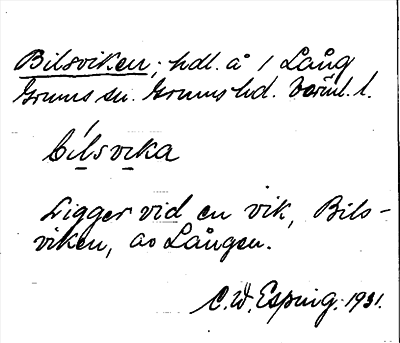 Bilsviken, hdl. å 1 Lång
Grums sn. Grums hd. Värml. l.
bílsvika
Ligger vid en vik, Bils-
viken, av Lången.
C.W. Esping. 1931.